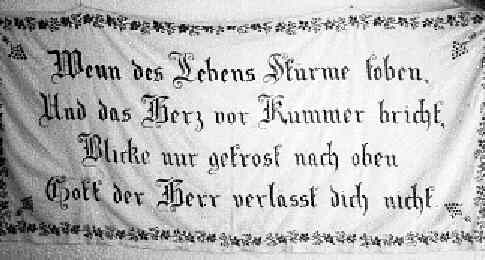 Wenn des Lebens Stürme toben,
Und das Herz vor Kummer bricht,
Blicke nur getrost nach oben
Gott der Herr verlasst dich nicht.